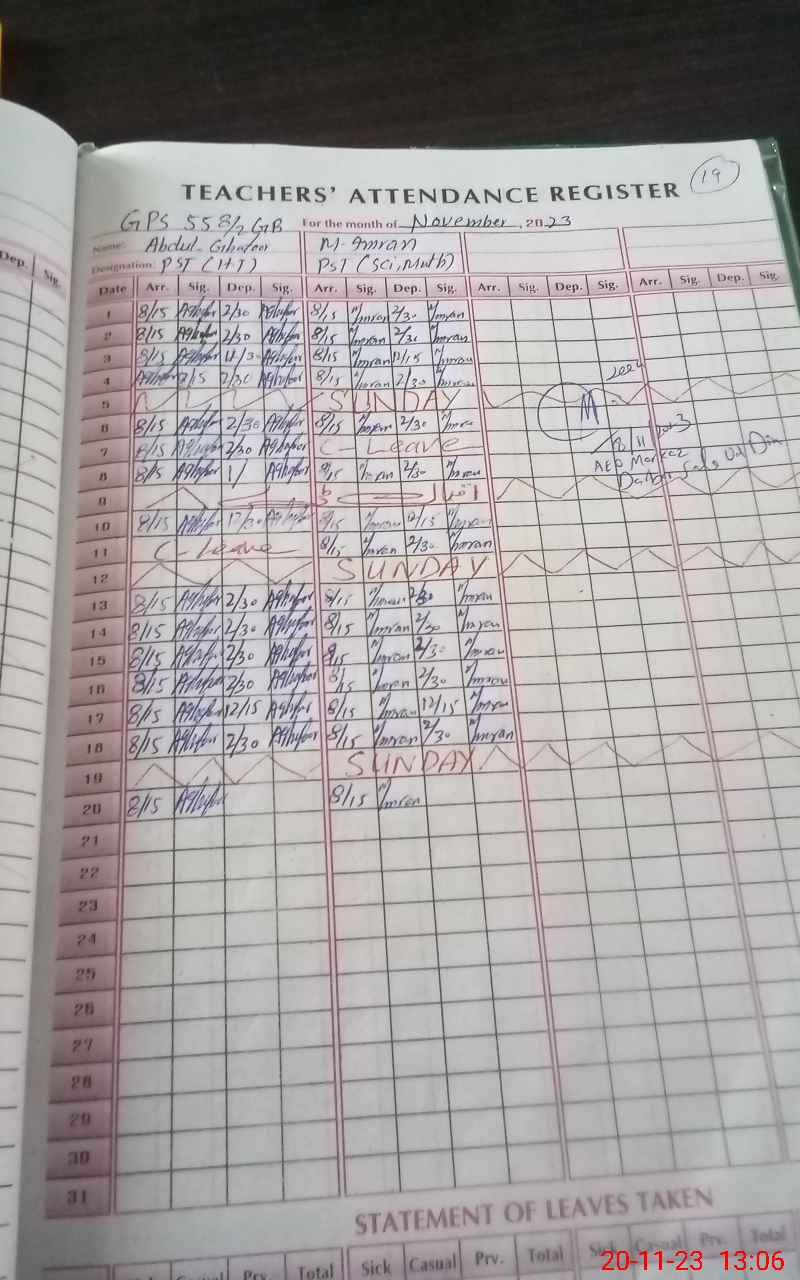 19
TEACHERS' ATTENDANCE REGISTER
GPS 558/2 GB For the month of November, 2023
Name: Abdul Ghafoor M. Imran
Designation: PST (H.T) PST (Sci, Math)
Dep. Sig.
Date Arr. Sig. Dep. Sig. Arr. Sig. Dep. Sig. Arr. Sig. Dep. Sig. Arr. Sig. Dep. Sig.
1 8/15 AGhafor 2/30 AGhafor 8/15 Imran 2/30 Imran
2 8/15 AGhafor 2/30 AGhafor 8/15 Imran 2/30 Imran
3 8/15 AGhafor AGhafor 8/15 Imran 12/15 Imran
4 AGhafor 8/15 2/30 AGhafor 8/15 Imran 2/30 Imran
5 SUNDAY
6 8/15 AGhafor 2/30 AGhafor 8/15 Imran 2/30 Imran
7 8/15 AGhafor 2/30 AGhafor C-Leave
8/11/2023
8 8/15 AGhafor 1/ AGhafor 8/15 Imran 2/30 Imran
AEO Markaz
9 اقبال
10 8/15 AGhafor AGhafor 8/15 Imran 12/15 Imran
11 C-Leave 8/15 Imran 2/30 Imran
12 SUNDAY
13 8/15 AGhafor 2/30 AGhafor 8/15 Imran 2/30 Imran
14 8/15 AGhafor 2/30 AGhafor 8/15 Imran 2/30 Imran
15 8/15 AGhafor 2/30 AGhafor 8/15 Imran 2/30 Imran
16 8/15 AGhafor 2/30 AGhafor 8/15 Imran 2/30 Imran
17 8/15 AGhafor 12/15 AGhafor 8/15 Imran 12/15 Imran
18 8/15 AGhafor 2/30 AGhafor 8/15 Imran 2/30 Imran
19 SUNDAY
20 8/15 AGhafor 8/15 Imran
21
22
23
24
25
26
27
28
29
30
31
STATEMENT OF LEAVES TAKEN
Sick Casual Prv. Total Sick Casual Prv. Total Sick Casual Prv. Total
20-11-23 13:06